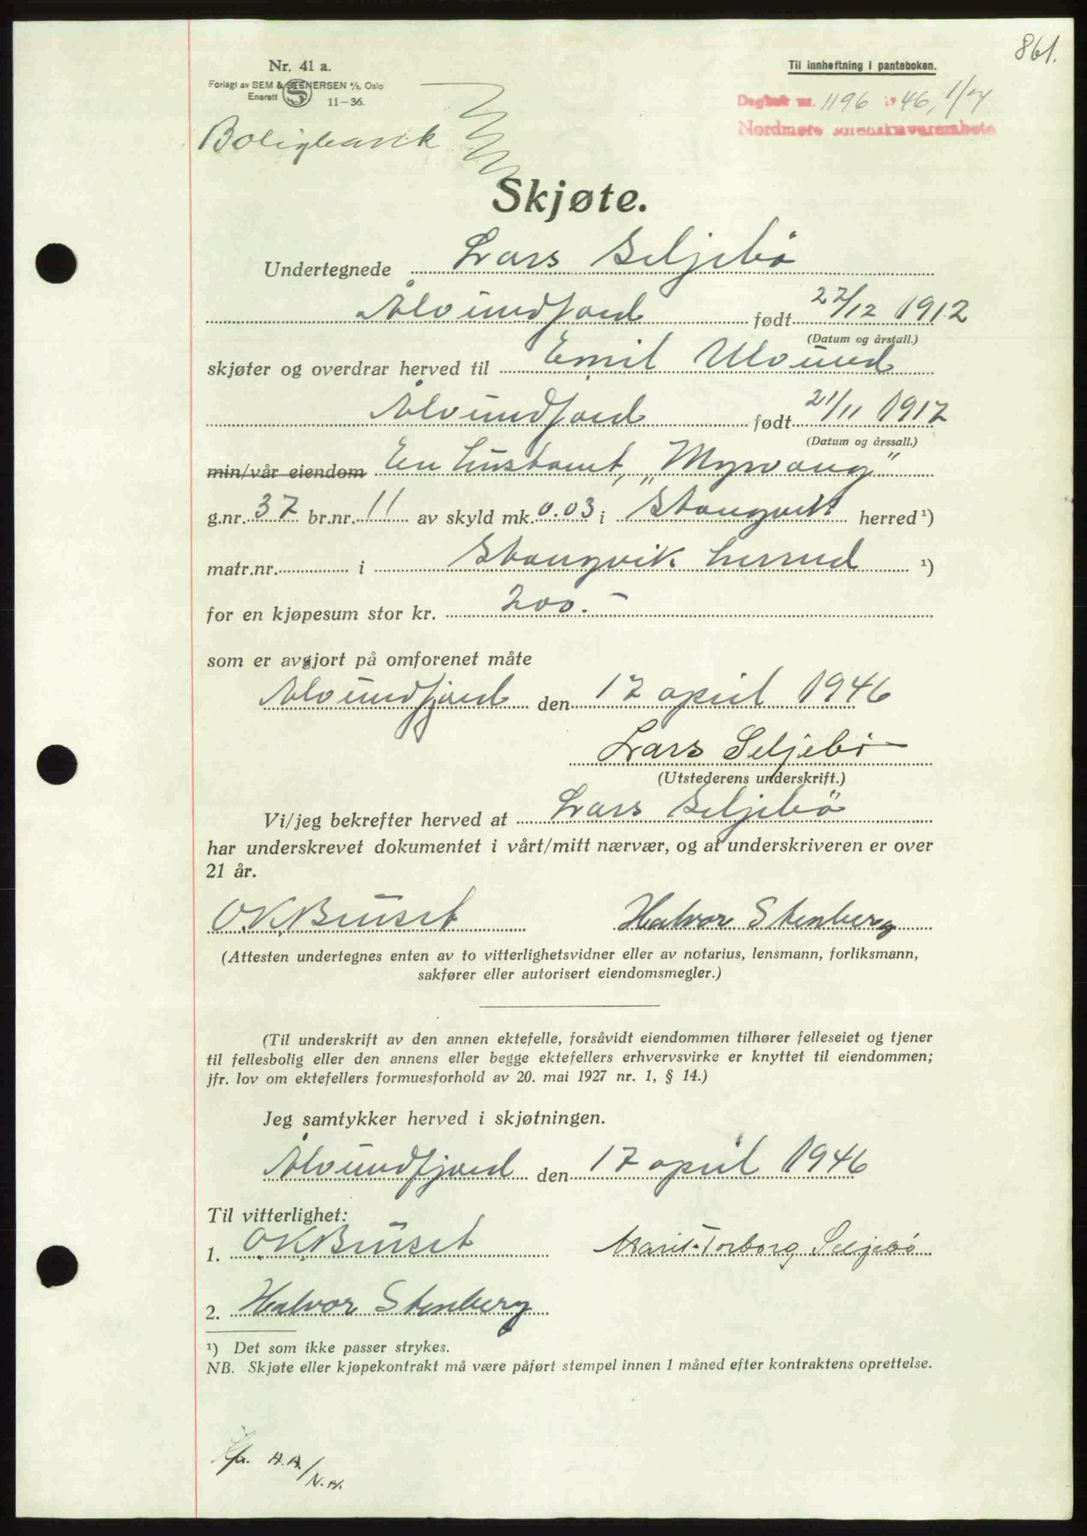 861.
Nr. 41 a.
Forlagt av SEM & STENERSEN A/S, Oslo
Enerett 11—36.
Til innheftning i panteboken.
Dagbok nr. 1196 1946, 1/7
Nordmøre sorenskriverembete
Boligbank
Skjøte.
Undertegnede Lars Seljebö
Ålvundfjord født 22/12 1912
(Datum og årstall.)
skjøter og overdrar herved til Emil Ulvund
Ålvundfjord født 21/11 1917
(Datum og årssall.)
min/vår eiendom En hustomt, „Myrvang"
g.nr. 37 br.nr. 11 av skyld mk. 0.03 i Stangvik herred ¹)
matr.nr. i Stangvik herred ¹)
for en kjøpesum stor kr. 200.-
som er avgjort på omforenet måte
Ålvundfjord den 17 april 1946
Lars Seljebö
(Utstederens underskrift.)
Vi/jeg bekrefter herved at Lars Seljebö
har underskrevet dokumentet i vårt/mitt nærvær, og at underskriveren er over
21 år.
O.K. Bruset Halvor Stenberg
(Attesten undertegnes enten av to vitterlighetsvidner eller av notarius, lensmann, forliksmann,
sakfører eller autorisert eiendomsmegler.)
(Til underskrift av den annen ektefelle, forsåvidt eiendommen tilhører felleseiet og tjener
til fellesbolig eller den annens eller begge ektefellers erhvervsvirke er knyttet til eiendommen;
jfr. lov om ektefellers formuesforhold av 20. mai 1927 nr. 1, § 14.)
Jeg samtykker herved i skjøtningen.
Ålvundfjord den 17 april 1946
Til vitterlighet:
1. O.K. Bruset Marit Torborg Seljebö
2. Halvor Stenberg
¹) Det som ikke passer strykes.
NB. Skjøte eller kjøpekontrakt må være påført stempel innen 1 måned efter kontraktens oprettelse.
H.H./N.H.